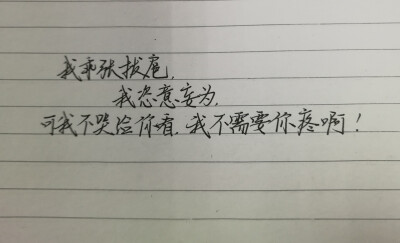 我乖张拔扈,
我恣意妄为,
可我不哭给你看,我不需要你疼啊!